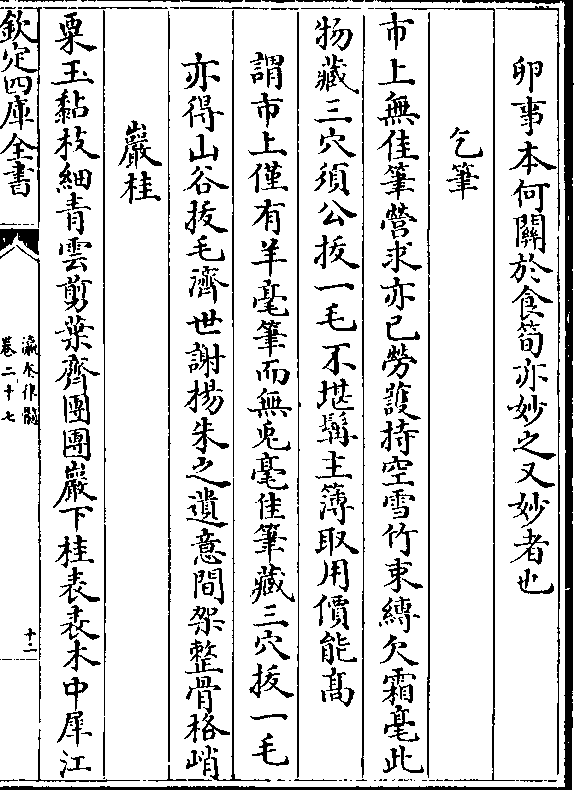 卵事本何關於食筍亦妙之又妙者也
乞筆
市上無佳筆營求亦已勞護持空雪竹束縛欠霜毫此
物藏三穴須公拔一毛不堪髯主簿取用價能髙
謂市上僅有羊毫筆而無兎毫佳筆藏三穴拔一毛
亦得山谷拔毛濟世謝楊朱之遺意間架整骨格峭
巖桂
粟玉黏枝細青雲剪葉齊團團巖下桂表表木中犀江
欽定四庫全書
瀛奎律髓
卷二十七
十二